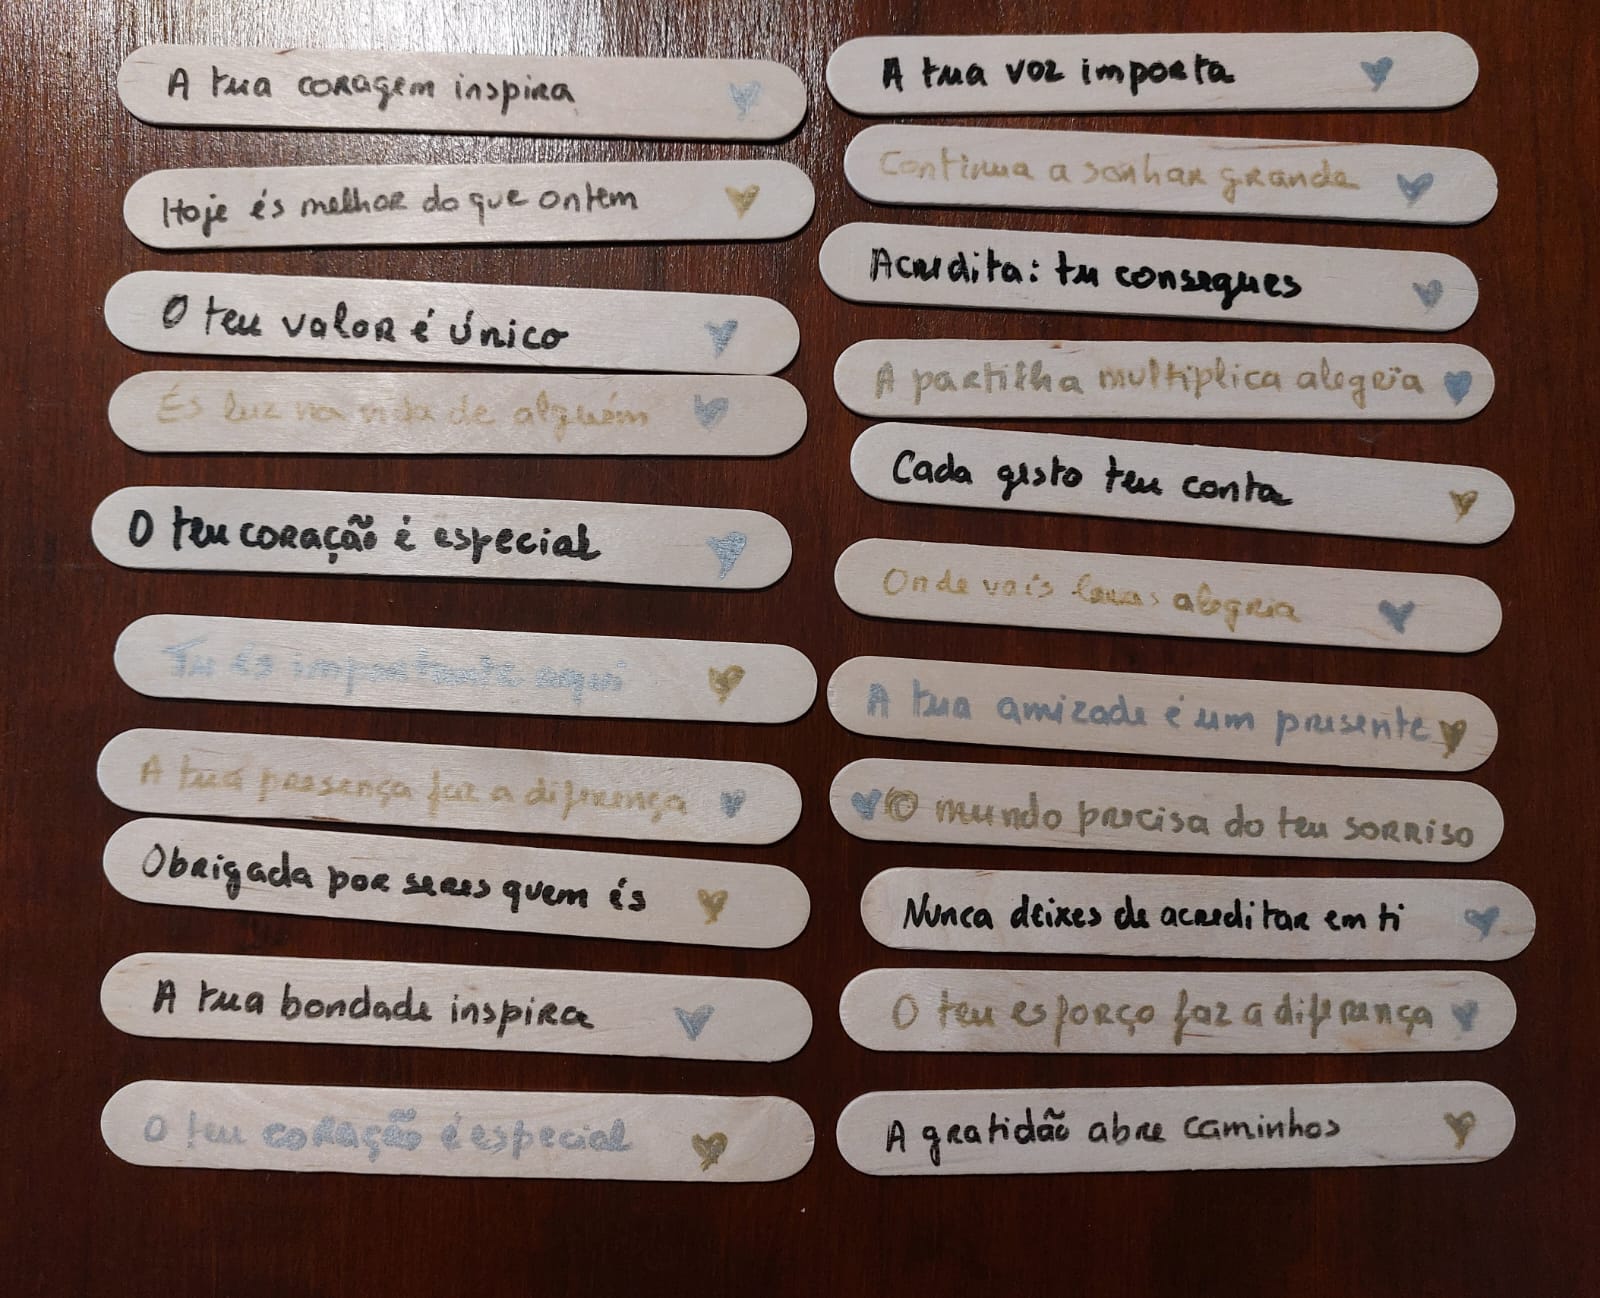 A tua coragem inspira
Hoje és melhor do que ontem
O teu valor é único
És luz na vida de alguém
O teu coração é especial
Tu és importante aqui
A tua presença faz a diferença
Obrigada por seres quem és
A tua bondade inspira
O teu coração é especial
A tua voz importa
Continua a sonhar grande
Acredita: tu consegues
A partilha multiplica alegria
Cada gesto teu conta
Onde vais levas alegria
A tua amizade é um presente
O mundo precisa do teu sorriso
Nunca deixes de acreditar em ti
O teu esforço faz a diferença
A gratidão abre caminhos